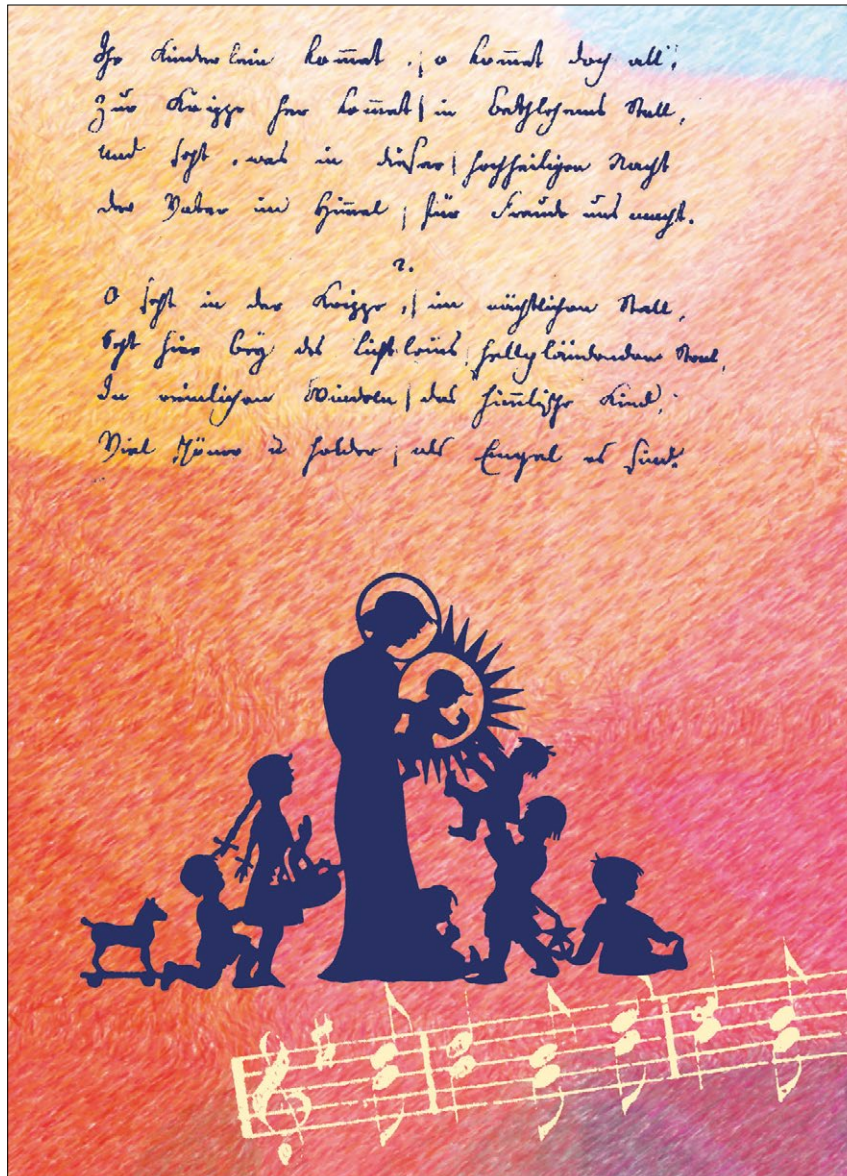 Ihr Kinderlein kom̄et, | o kom̄et doch all',
Zur Krippe her kom̄et | in Bethlehems Stall,
Und seht, was in dieser | hochheiligen Nacht
der Vater im Him̄el | für Freude uns macht.
2.
O seht in der Krippe, | im nächtlichen Stall,
Seht hier bey des Lichtleins | hellglänzendem Stral,
In reinlichen Windeln | das him̄lische Kind,
Viel schöner u holder, | als Engel es sind.